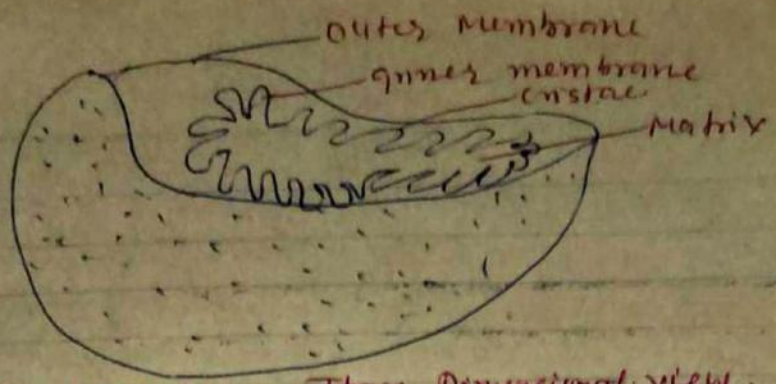 Outer Membrane
Inner membrane
cristae
Matrix
Three Dimensional view